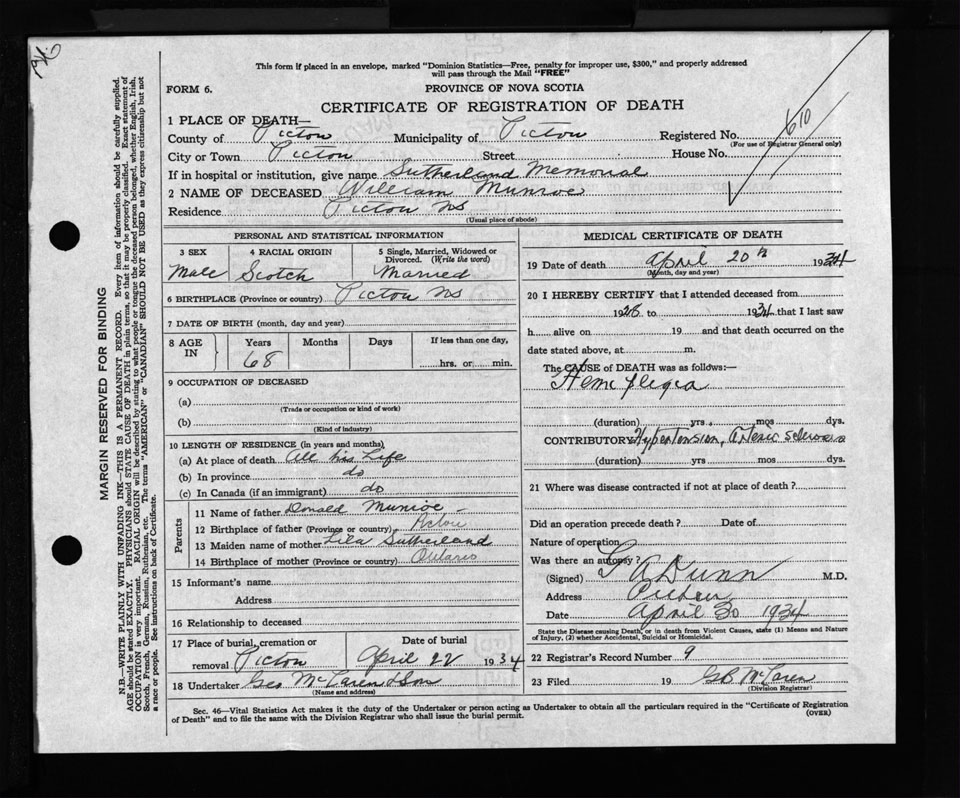 This form if placed in an envelope, marked "Dominion Statistics—Free, penalty for improper use, $300," and properly addressed
will pass through the Mail "FREE"
FORM 6.
PROVINCE OF NOVA SCOTIA
CERTIFICATE OF REGISTRATION OF DEATH
1 PLACE OF DEATH—
County of Pictou Municipality of Pictou Registered No. 610
(For use of Registrar General only)
City or Town Pictou Street House No.
If in hospital or institution, give name Sutherland Memorial
2 NAME OF DECEASED William Munroe
Residence Pictou NS
(Usual place of abode)
PERSONAL AND STATISTICAL INFORMATION
3 SEX 4 RACIAL ORIGIN 5 Single, Married, Widowed or
Divorced. (Write the word)
Male Scotch Married
6 BIRTHPLACE (Province or country) Pictou NS
7 DATE OF BIRTH (month, day and year)
8 AGE IN Years Months Days If less than one day,
68 hrs. or min.
9 OCCUPATION OF DECEASED
(a)
(Trade or occupation or kind of work)
(b)
(Kind of industry)
10 LENGTH OF RESIDENCE (in years and months)
(a) At place of death All his Life
(b) In province do
(c) In Canada (if an immigrant) do
Parents
11 Name of father Donald Munroe
12 Birthplace of father (Province or country) Pictou
13 Maiden name of mother Lila Sutherland
14 Birthplace of mother (Province or country) Ontario
15 Informant's name
Address
16 Relationship to deceased
17 Place of burial, cremation or Date of burial
removal Pictou April 22 1934
18 Undertaker Geo McLaren & Son
(Name and address)
MEDICAL CERTIFICATE OF DEATH
19 Date of death April 20th 1934
(Month, day and year)
20 I HEREBY CERTIFY that I attended deceased from
1928 to 1934 that I last saw
h alive on 19 and that death occurred on
date stated above, at m.
The CAUSE of DEATH was as follows:—
Hemiplegia
(duration) yrs. mos dys.
CONTRIBUTORY Hypertension, Arterio sclerosis
(duration) yrs mos dys.
21 Where was disease contracted if not at place of death?
Did an operation precede death? Date of
Nature of operation
Was there an autopsy?
(Signed) Dunn M.D.
Address Pictou
Date April 30 1934
State the Disease causing Death, or in death from Violent Causes, state (1) Means and Nature
of Injury, (2) whether Accidental, Suicidal or Homicidal.
22 Registrar's Record Number 9
23 Filed 19 GB McLaren
(Division Registrar)
Sec. 46—Vital Statistics Act makes it the duty of the Undertaker or person acting as Undertaker to obtain all the particulars required in the "Certificate of Registration
of Death" and to file the same with the Division Registrar who shall issue the burial permit.
(OVER)
MARGIN RESERVED FOR BINDING
N.B.—WRITE PLAINLY WITH UNFADING INK—THIS IS A PERMANENT RECORD. Every item of information should be carefully supplied.
AGE should be stated EXACTLY. PHYSICIANS should STATE CAUSE OF DEATH in plain terms, so that it may be properly classified. Exact statement of
OCCUPATION is very important. RACIAL ORIGIN will be described by stating to what people or tongue the deceased person belonged, whether English, Irish,
Scotch, French, German, Russian, Ruthenian, etc. The terms "AMERICAN" or "CANADIAN" SHOULD NOT BE USED as they express citizenship but not
a race or people. See instructions on back of Certificate.